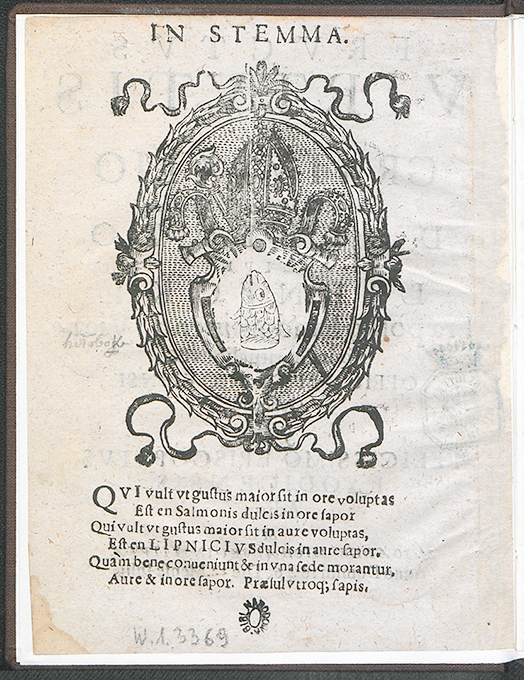 IN STEMMA.
QVI vult vt gustus maior sit in ore voluptas
Est en Salmonis dulcis in ore sapor
Qui vult vt gustus maior sit in aure voluptas,
Est en LIPNICIVS dulcis in aure sapor.
Quàm bene conueniunt & in vna sede morantur,
Aure & in ore sapor. Præsul vtroq; sapis.
W.1.3369